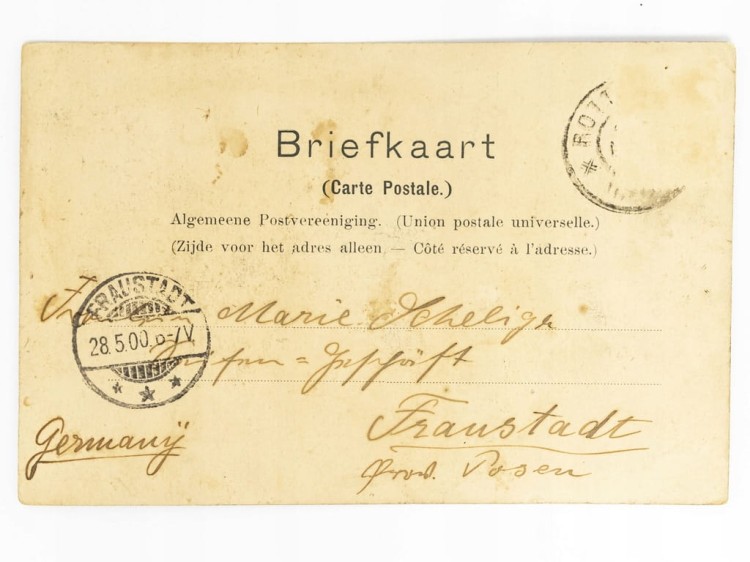 Briefkaart
(Carte Postale.)
Algemeene Postvereeniging. (Union postale universelle.)
(Zijde voor het adres alleen. — Côté réservé à l'adresse.)
ROTT
FRAUSTADT
28.5.00. 6-7V.
Marie Scheliga
Geschäft
Fraustadt
Prov. Posen
Germany